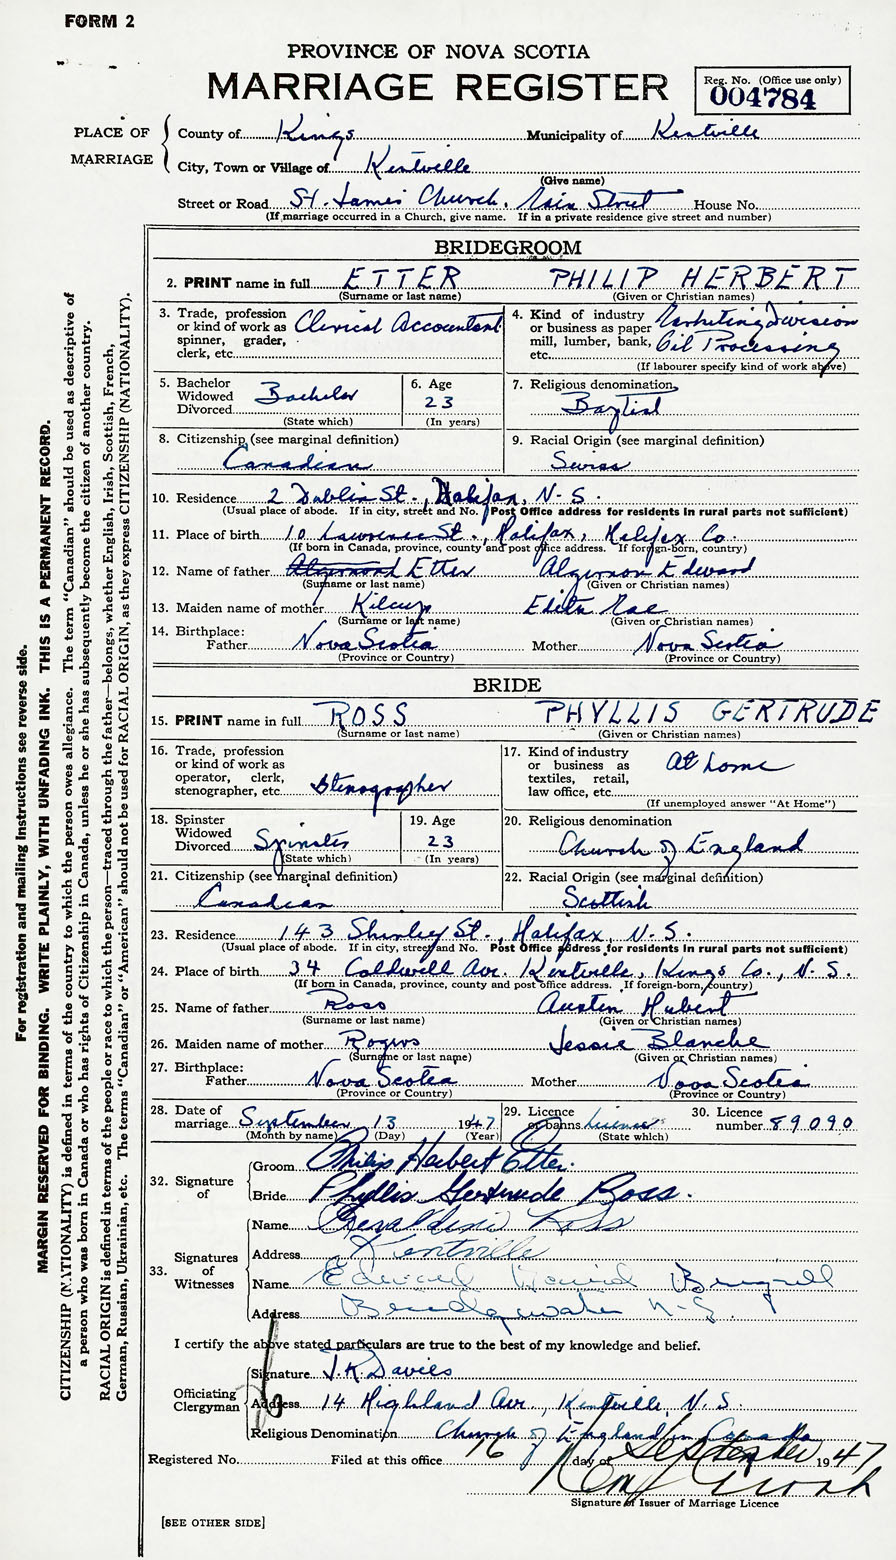 FORM 2
PROVINCE OF NOVA SCOTIA
MARRIAGE REGISTER
Reg. No. (Office use only)
004784
PLACE OF MARRIAGE
County of Kings Municipality of Kentville
City, Town or Village of Kentville
(Give name)
Street or Road St. James Church, Main Street House No.
(If marriage occurred in a Church, give name. If in a private residence give street and number)
BRIDEGROOM
2. PRINT name in full ETTER PHILIP HERBERT
(Surname or last name) (Given or Christian names)
3. Trade, profession or kind of work as spinner, grader, clerk, etc. Clerical Accountant
4. Kind of industry or business as paper mill, lumber, bank, etc. Marketing Division Oil Processing
(If labourer specify kind of work above)
5. Bachelor Widowed Divorced Bachelor
(State which)
6. Age 23
(In years)
7. Religious denomination Baptist
8. Citizenship (see marginal definition) Canadian
9. Racial Origin (see marginal definition) Swiss
10. Residence 2 Dublin St., Halifax, N.S.
(Usual place of abode. If in city, street and No. Post Office address for residents in rural parts not sufficient)
11. Place of birth 10 Lawrence St., Halifax, Halifax Co.
(If born in Canada, province, county and post office address. If foreign-born, country)
12. Name of father Etter Algernon Edward
(Surname or last name) (Given or Christian names)
13. Maiden name of mother Kilcup Edith Mae
(Surname or last name) (Given or Christian names)
14. Birthplace:
Father Nova Scotia Mother Nova Scotia
(Province or Country) (Province or Country)
BRIDE
15. PRINT name in full ROSS PHYLLIS GERTRUDE
(Surname or last name) (Given or Christian names)
16. Trade, profession or kind of work as operator, clerk, stenographer, etc. Stenographer
17. Kind of industry or business as textiles, retail, law office, etc. At home
(If unemployed answer "At Home")
18. Spinster Widowed Divorced Spinster
(State which)
19. Age 23
(In years)
20. Religious denomination Church of England
21. Citizenship (see marginal definition) Canadian
22. Racial Origin (see marginal definition) Scottish
23. Residence 143 Shirley St., Halifax, N.S.
(Usual place of abode. If in city, street and No. Post Office address for residents in rural parts not sufficient)
24. Place of birth 34 Caldwell Ave. Kentville, Kings Co., N.S.
(If born in Canada, province, county and post office address. If foreign-born, country)
25. Name of father Ross Austin Hubert
(Surname or last name) (Given or Christian names)
26. Maiden name of mother Rogers Jessie Blanche
(Surname or last name) (Given or Christian names)
27. Birthplace:
Father Nova Scotia Mother Nova Scotia
(Province or Country) (Province or Country)
28. Date of marriage September 13 1947
(Month by name) (Day) (Year)
29. Licence or banns License
(State which)
30. Licence number 89090
32. Signature of
Groom Philip Herbert Etter.
Bride Phyllis Gertrude Ross.
33. Signatures of Witnesses
Name Geraldine Ross
Address Kentville
Name Edward David
Address Bridgewater N-S.
I certify the above stated particulars are true to the best of my knowledge and belief.
Officiating Clergyman
Signature J.K. Davies
Address 14 Highland Ave., Kentville, N.S.
Religious Denomination Church of England in Canada
Registered No. Filed at this office 16 day of September 1947
Signature of Issuer of Marriage Licence
[SEE OTHER SIDE]
For registration and mailing instructions see reverse side.
MARGIN RESERVED FOR BINDING. WRITE PLAINLY, WITH UNFADING INK. THIS IS A PERMANENT RECORD.
CITIZENSHIP (NATIONALITY) is defined in terms of the country to which the person owes allegiance. The term "Canadian" should be used as descriptive of
a person who was born in Canada or who has rights of Citizenship in Canada, unless he or she has subsequently become the citizen of another country.
RACIAL ORIGIN is defined in terms of the people or race to which the person—traced through the father—belongs, whether English, Irish, Scottish, French,
German, Russian, Ukrainian, etc. The terms "Canadian" or "American" should not be used for RACIAL ORIGIN, as they express CITIZENSHIP (NATIONALITY).